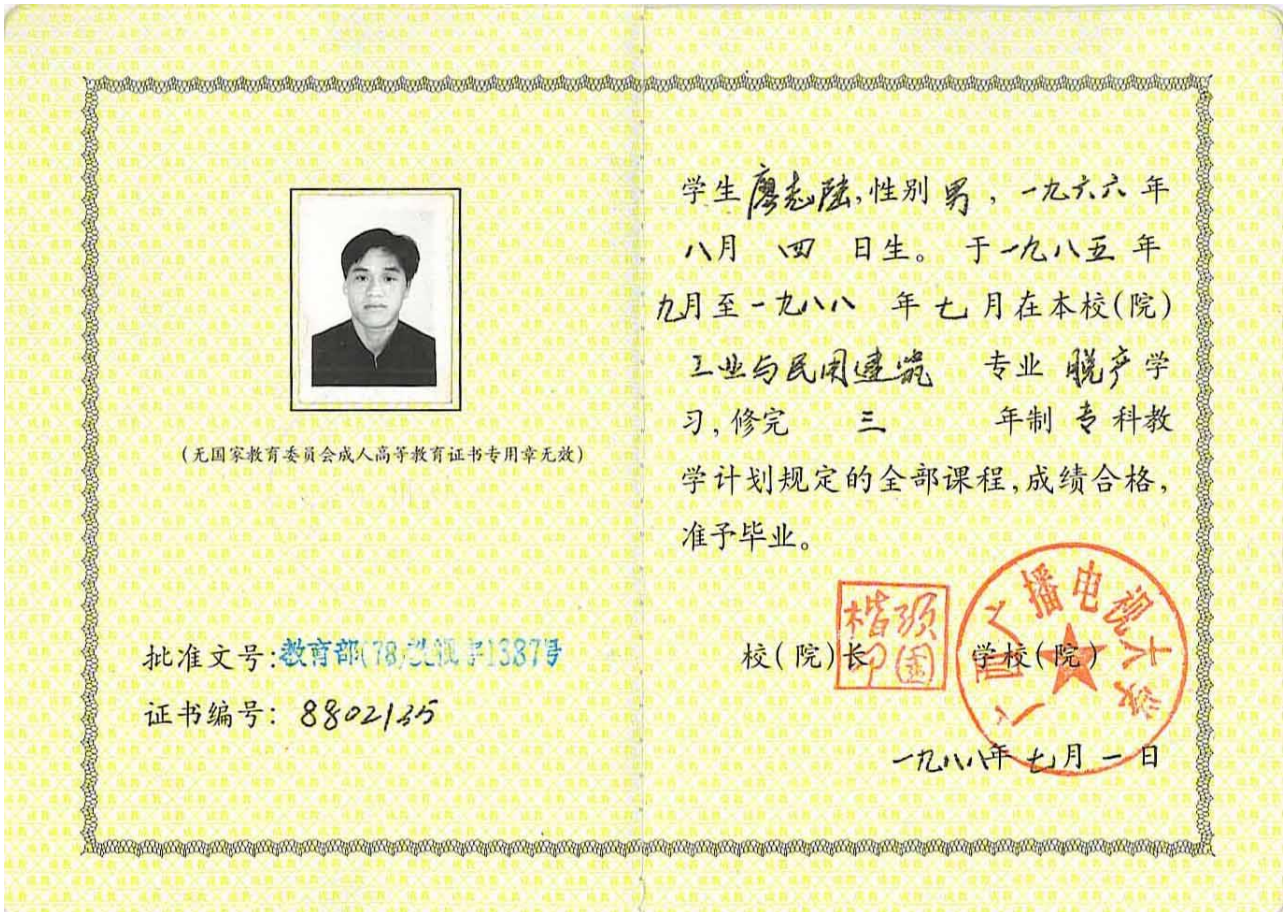 (无国家教育委员会成人高等教育证书专用章无效)
批准文号:教育部(78)
1387号
证书编号: 8802135
学生廖志陆,性别 男 ,一九六六 年
八月 四 日生。 于一九八五 年
九月至一九八八 年 七 月在本校(院)
工业与民用建筑 专业 脱产学
习,修完 三 年制 专 科教
学计划规定的全部课程,成绩合格,
准予毕业。
校(院)长 学校(院)
广西广播电视大学
一九八八年 七月 一 日